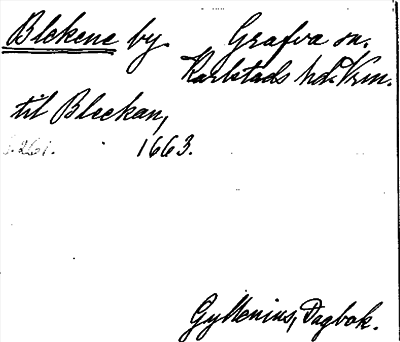 Blekene by. Grafva sn.
Karlstads hd. Vrm.
til Bleckan,
s. 261. 1663.
Gyllenius, Dagbok.